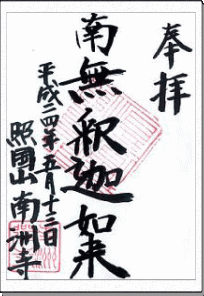 奉拝
南無釈迦如来
平成二四年五月十三日
照国山南洲寺